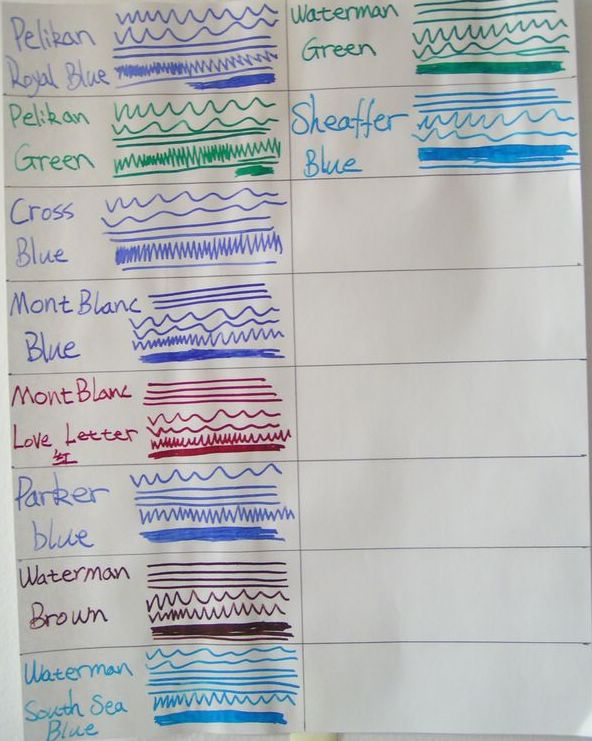 Pelikan
Royal Blue
Pelikan
Green
Cross
Blue
MontBlanc
Blue
MontBlanc
Love Letter
红
Parker
blue
Waterman
Brown
Waterman
South Sea
Blue
Waterman
Green
Sheaffer
Blue